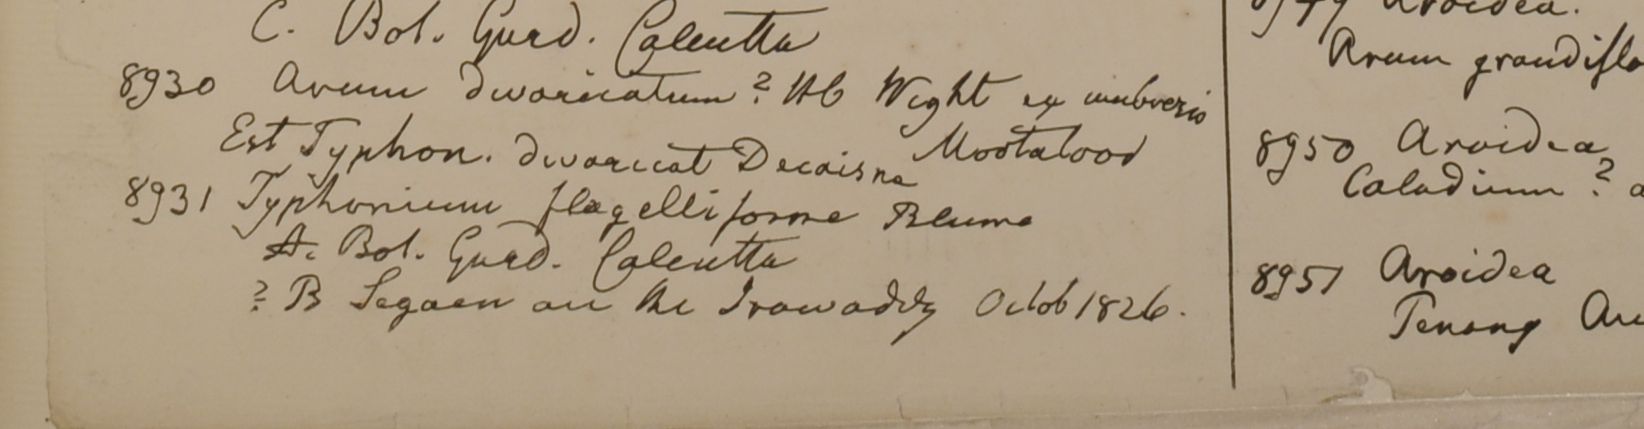 C. Bot. Gard. Calcutta
8930 Arum divaricatum? Hb Wight ex umbrosis
Mootalood
Est Typhon. divaricat Decaisne
8931 Typhonium flagelliforme Blume
A. Bot. Gard. Calcutta
? B Segaen on the Irawaddy Octob 1826.
Aroidea.
Arum grandiflo
8950 Aroidea
Caladium?
8951 Aroidea
Penang